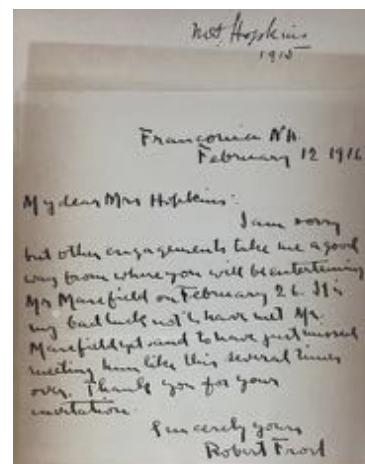 Hopkins
1915
Franconia N.H.
February 12 1916
My dear Mrs Hopkins:
I am sorry
but other engagements take me a good
way from where you will be entertaining
Mr Masefield on February 26. It is
my bad luck not to have met Mr.
Masefield yet and to have just missed
meeting him like this several times
over. Thank you for your
invitation.
Sincerely yours
Robert Frost